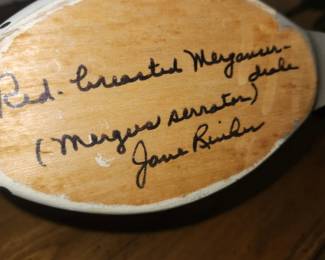 Red-breasted Merganser-
drake
(Mergus serrator)
Jane